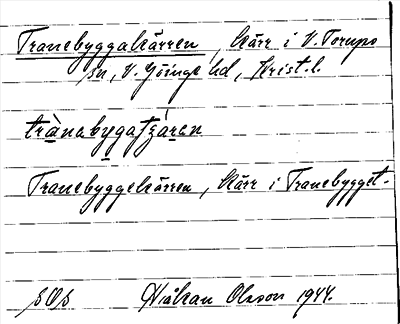 Tranebyggakärren, Kärr i V. Torups
sn, V. Göinge hd, Krist. l.
trànabygatʃären
Tranebyggekärren, Kärr i Tranebygget.
sOs Håkan Olsson 1944.